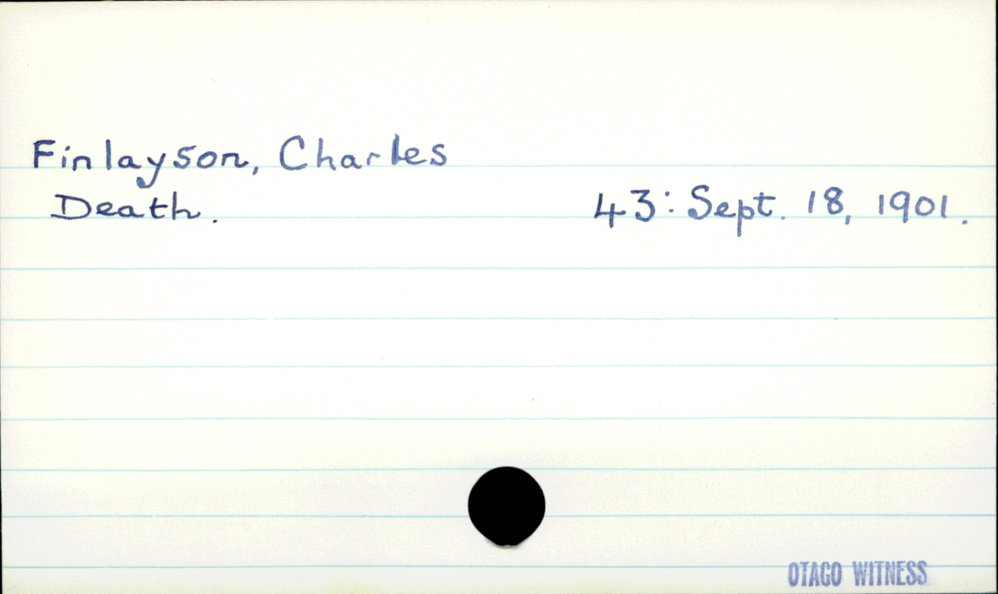 Finlayson, Charles
Death. 43: Sept. 18, 1901.
OTAGO WITNESS